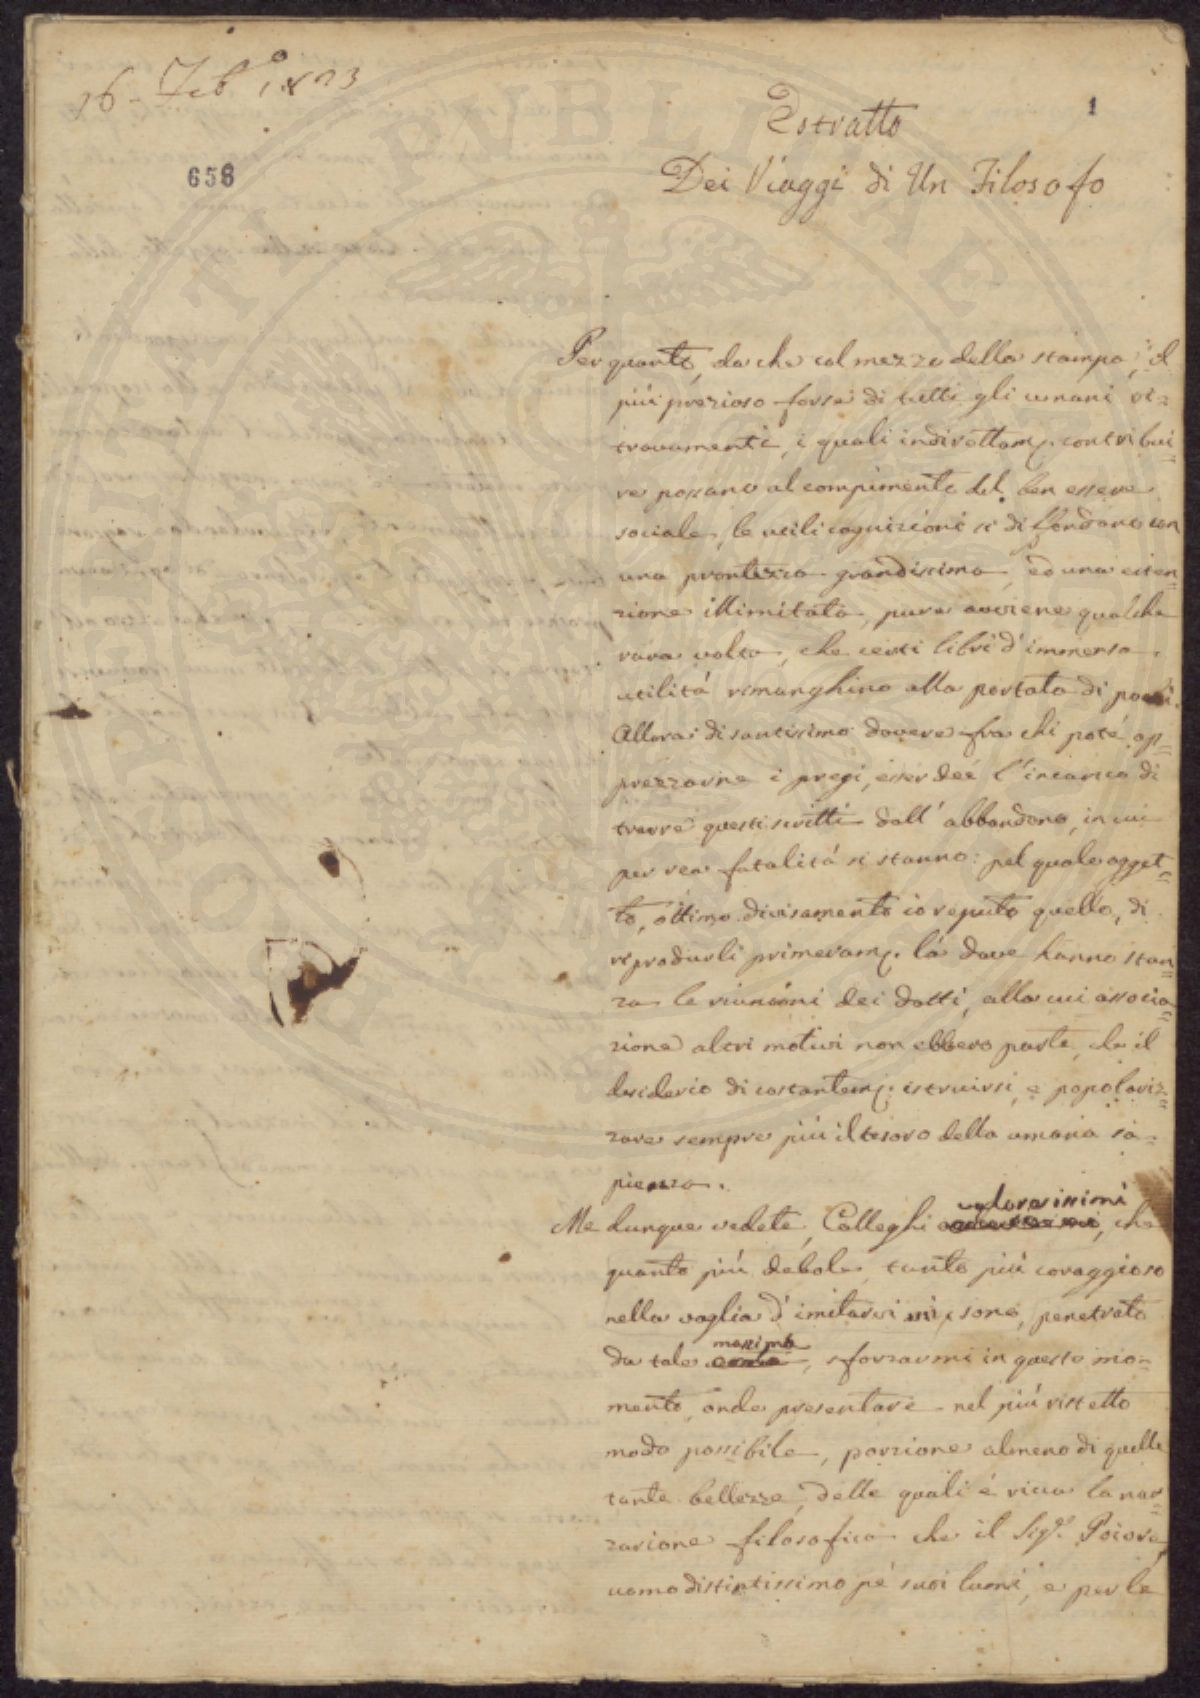 16. Feb.º 1823
1
658
Estratto
Dei Viaggi di Un Filosofo
Per quanto, da che col mezzo della stampa, il
più prezioso forse di tutti gli umani ri=
trovamenti, i quali indirettam. contribui=
re possano al compimento del ben essere
sociale, le utili cognizioni si diffondano con
una prontezza grandissima, ed una esten=
zione illimitata, pure avviene qualche
rara volta, che certi libri d'immensa
utilità rimanghino alla portata di pochi.
Allora di santissimo dovere fra chi poté ap=
prezzarne i pregi, esser deé l'incarico di
trarre questi scritti dall'abbandono, in cui
per rea fatalità si stanno: pel quale ogget=
to, ottimo divisamento io reputo quello, di
riprodurli primeram. là dove hanno stan=
za le riunioni dei dotti, alla cui associa=
zione altri motivi non ebbero parte, che il
desiderio di costantem. istruirsi, e popolariz=
zare sempre più il tesoro della umana sa=
pienza.
valorosissimi
Me dunque vedete, Colleghi, che
quanto più debole, tanto più coraggioso
nella voglia d'imitarvi mi sono, penetrato
massima
da tale, sforzarmi in questo mo=
mento, onde presentare nel più ristretto
modo possibile, porzione almeno di quelle
tante bellezze, delle quali é ricca la nar=
razione filosofica che il Sigr. Poivre,
uomo distintissimo pé suoi lumi, e per le
PVBLICAE